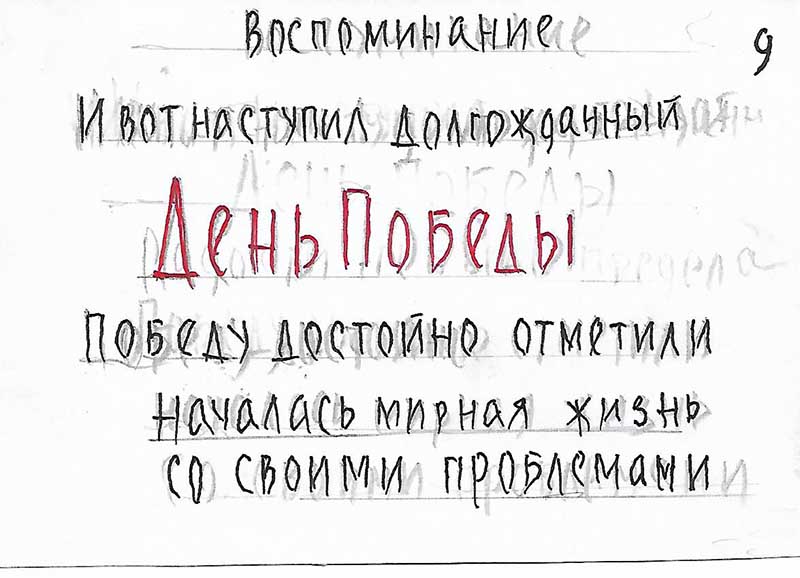 Воспоминание
9
И вот наступил долгожданный
День Победы
Победу достойно отметили
началась мирная жизнь
со своими проблемами